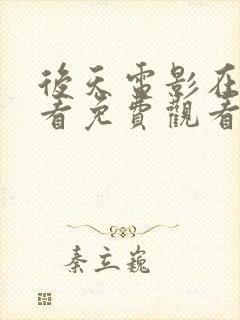 後天雷影在
看免費觀看
秦立巍